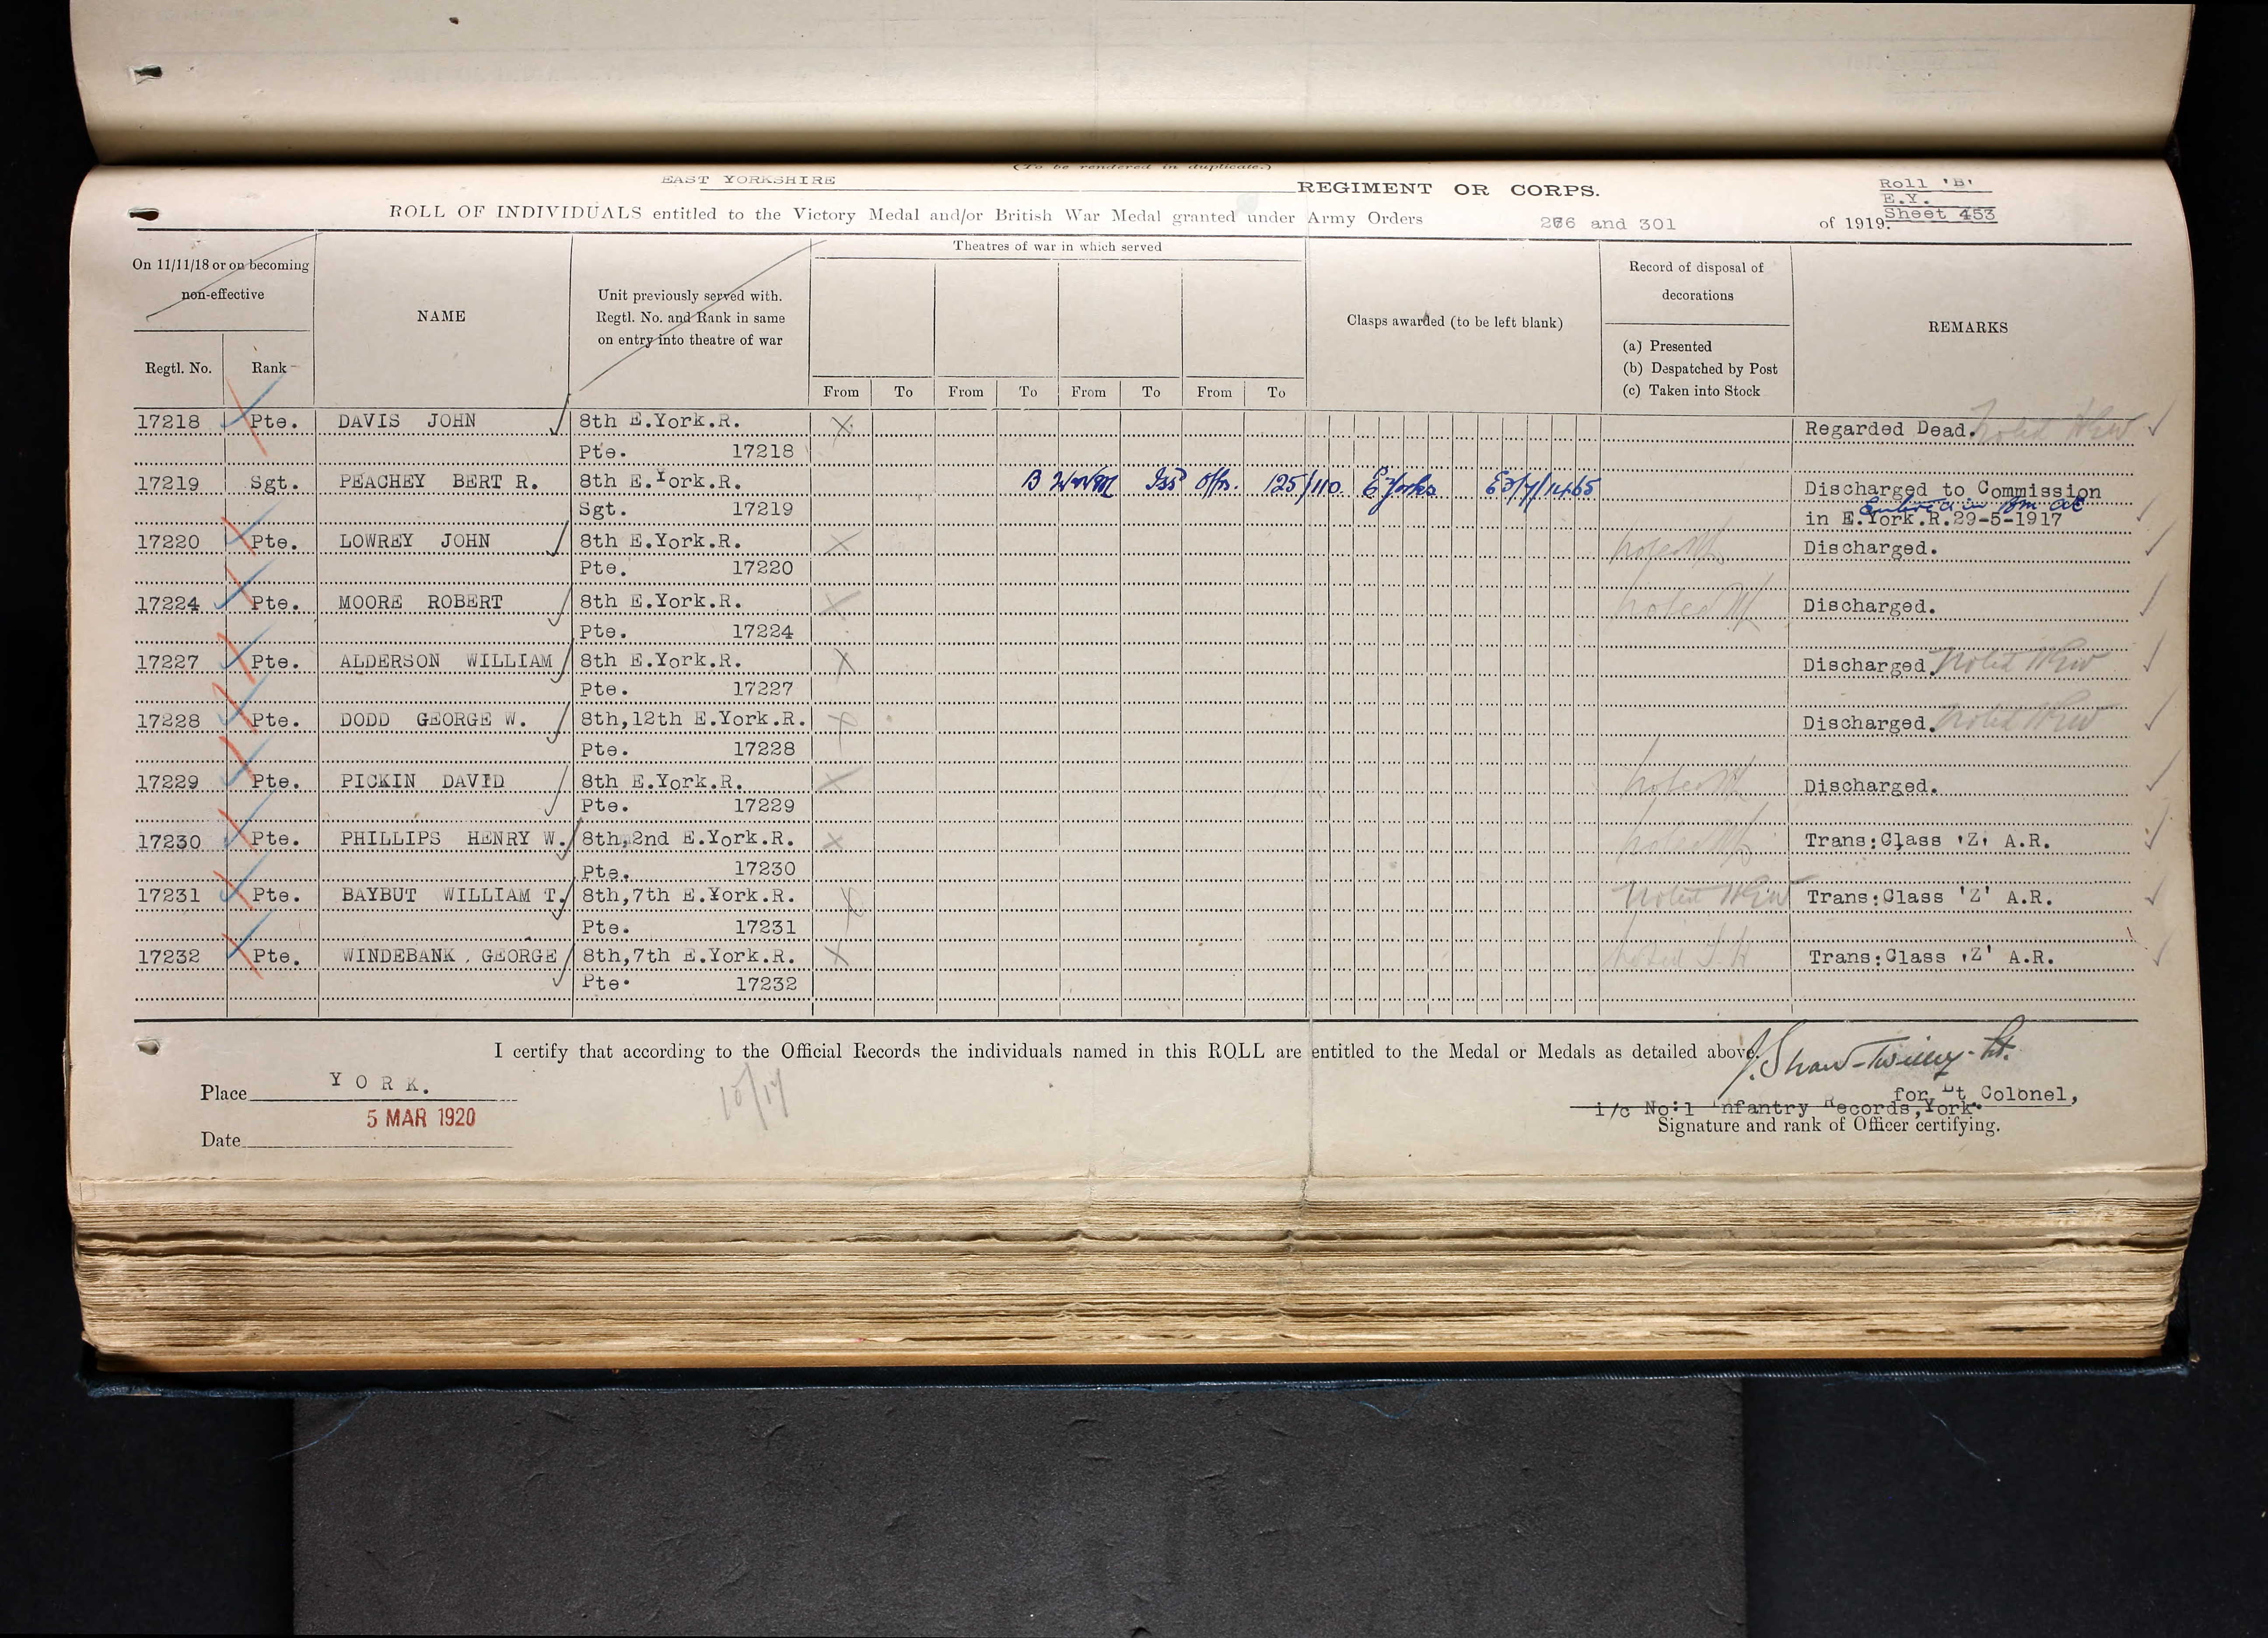 (To be rendered in duplicate.)
EAST YORKSHIRE REGIMENT OR CORPS.
Roll 'B'
E.Y.
Sheet 453
ROLL OF INDIVIDUALS entitled to the Victory Medal and/or British War Medal granted under Army Orders 266 and 301 of 1919.
On 11/11/18 or on becoming non-effective
Regtl. No.
Rank
NAME
Unit previously served with.
Regtl. No. and Rank in same
on entry into theatre of war
Theatres of war in which served
From To From To From To From To
Clasps awarded (to be left blank)
Record of disposal of
decorations
(a) Presented
(b) Despatched by Post
(c) Taken into Stock
REMARKS
17218 Pte. DAVIS JOHN 8th E.York.R. X Regarded Dead. Noted
Pte. 17218
17219 Sgt. PEACHEY BERT R. 8th E.York.R. Offrs. 125/110 E Yorks Discharged to Commission
Sgt. 17219 in E.York.R.29-5-1917
17220 Pte. LOWREY JOHN 8th E.York.R. X Noted Discharged.
Pte. 17220
17224 Pte. MOORE ROBERT 8th E.York.R. X Noted Discharged.
Pte. 17224
17227 Pte. ALDERSON WILLIAM 8th E.York.R. X Discharged. Noted
Pte. 17227
17228 Pte. DODD GEORGE W. 8th,12th E.York.R. X Discharged. Noted
Pte. 17228
17229 Pte. PICKIN DAVID 8th E.York.R. X Noted Discharged.
Pte. 17229
17230 Pte. PHILLIPS HENRY W. 8th,2nd E.York.R. X Noted Trans:Class 'Z' A.R.
Pte. 17230
17231 Pte. BAYBUT WILLIAM T. 8th,7th E.York.R. X Noted Trans:Class 'Z' A.R.
Pte. 17231
17232 Pte. WINDEBANK. GEORGE 8th,7th E.York.R. X Noted Trans:Class 'Z' A.R.
Pte. 17232
I certify that according to the Official Records the individuals named in this ROLL are entitled to the Medal or Medals as detailed above.
Place YORK.
for Lt Colonel,
i/c No:1 Infantry Records,York.
5 MAR 1920
Signature and rank of Officer certifying.
Date